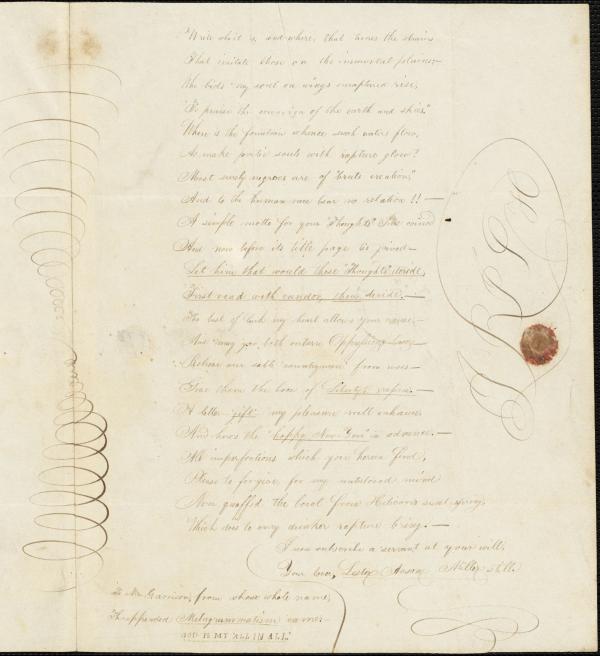 Write what is, and where, that tunes the strains
That imitate those on the immortal plains;—
Who bids my soul on wings enraptured rise,
"To praise the sovereign of the earth and skies."
Where is the fountain whence such waters flow,
As make poetic souls with rapture glow?
Most surely negroes are of "brute creation,"
And to the human race bear no relation!! —
A simple motto for your "Thoughts" I've coined
And now before its title page be joined—
Let him that would these "Thoughts" deride,
"First read with candor, then, decide."—
The best of luck my heart allows your name,—
And may you, both outlive Oppression
our sable countrymen from woes—
the love of Liberty's —
A better "gift" my pleasure will enhance,
And here's the "happy New Year" in advance.—
All imperfections which you herein find,
Please to forgive, for my untutored mind
Ne'er quaff'd the bowl from Helicon's sweet spring,
Which does to every drinker rapture bring.—
I now subscribe a servant at your will,
Your
To Mr. Garrison, from whose whole name,
Th'appended Metagrammatism came:—
GOD IS MY ALL IN ALL.